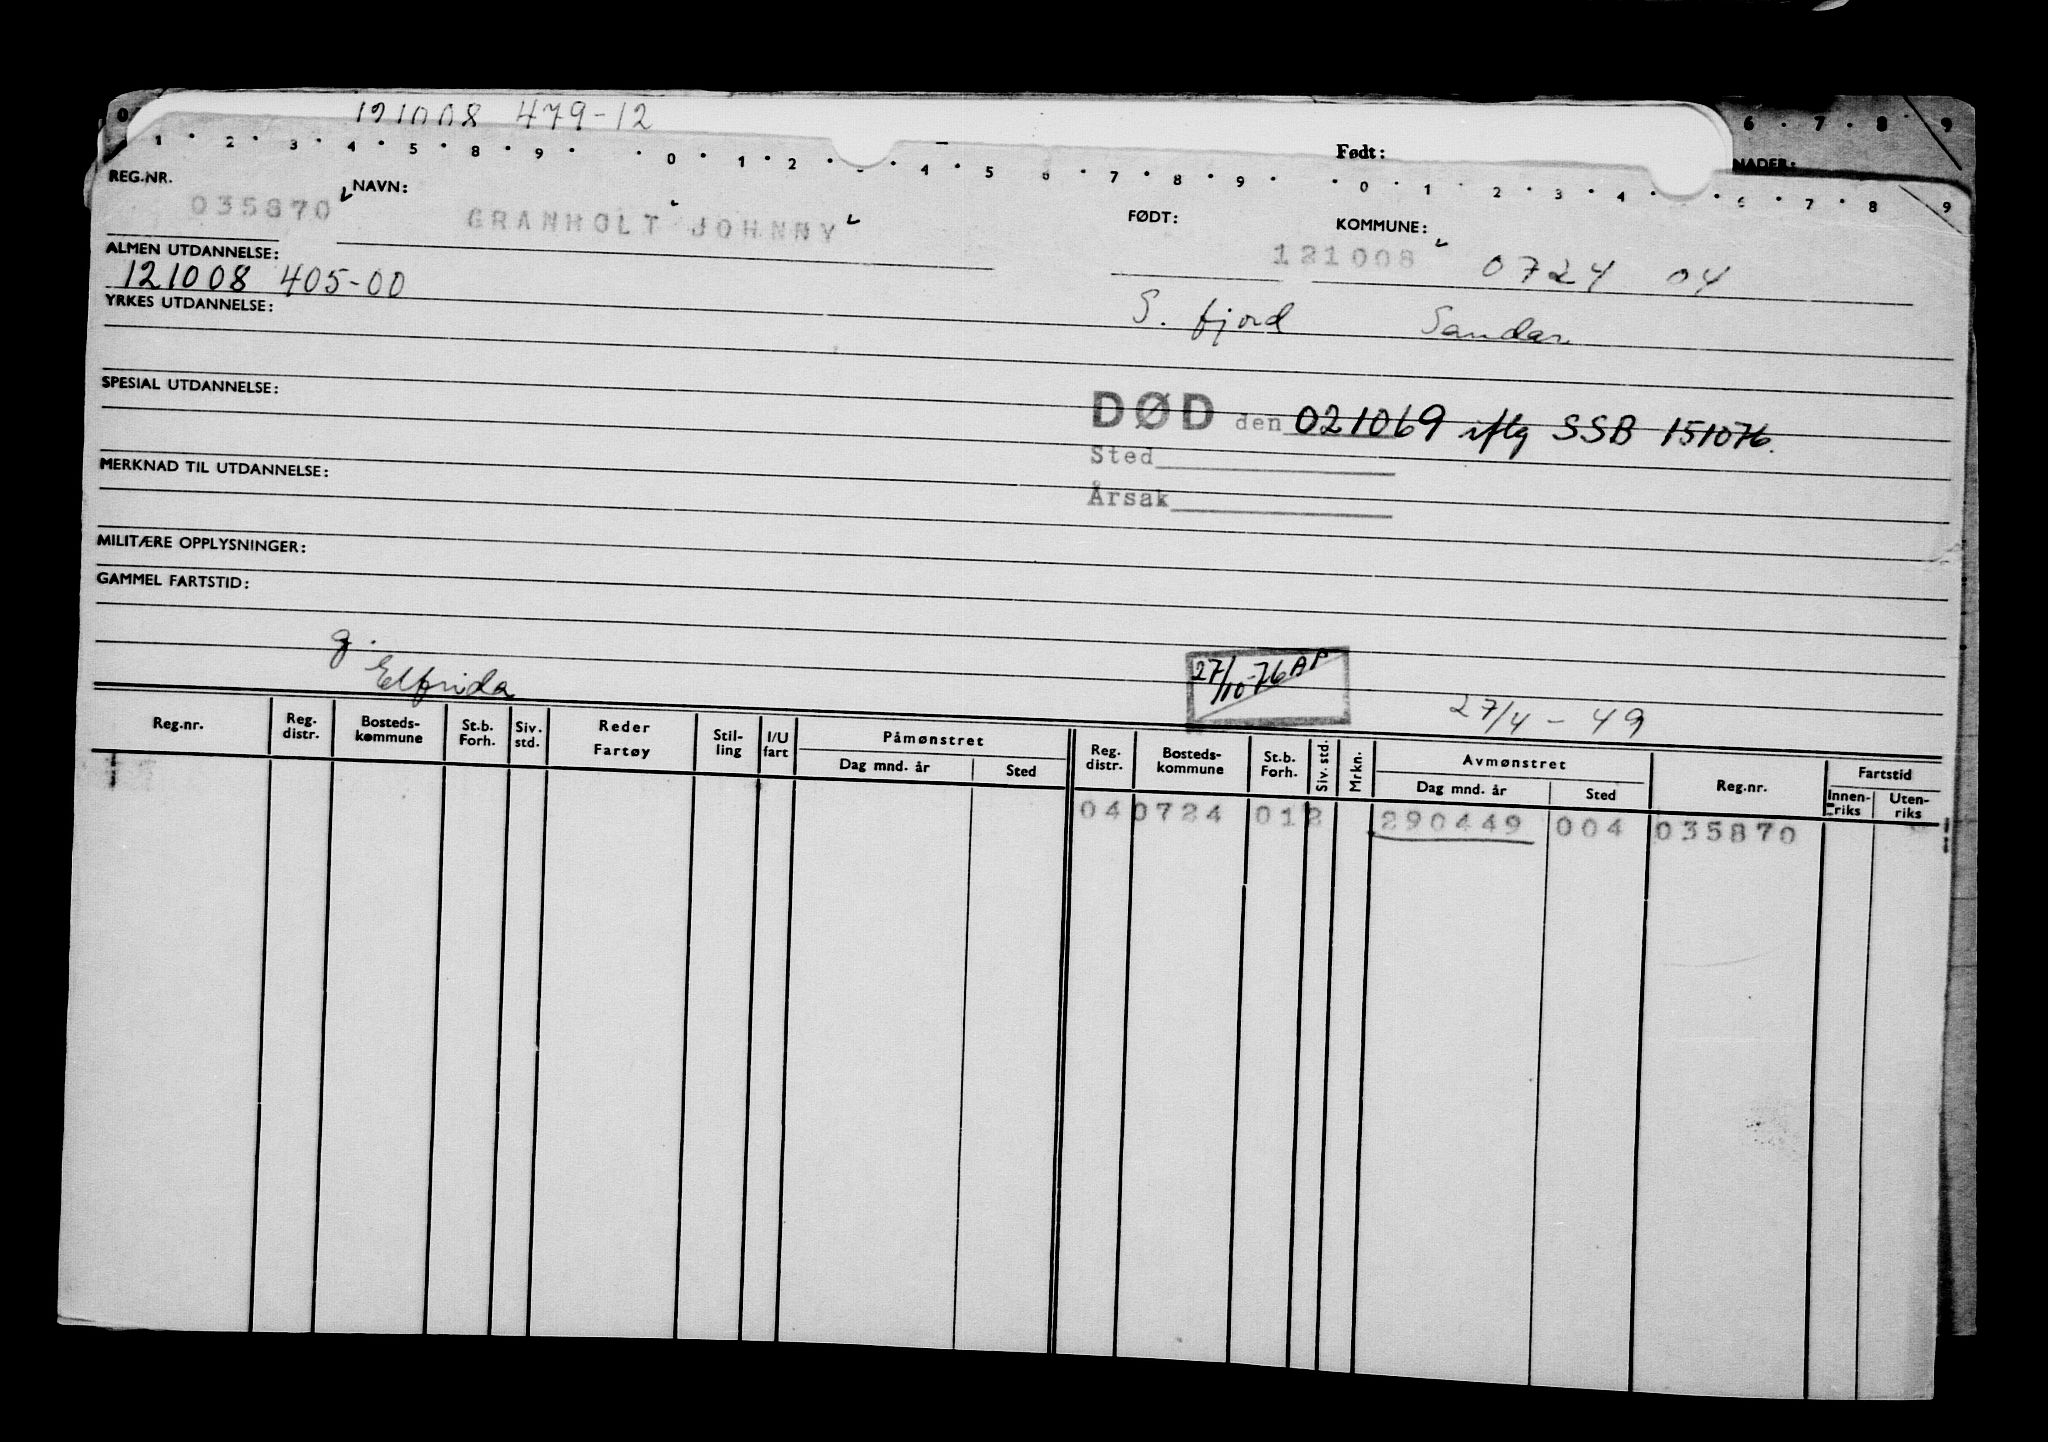 121008 479-12
0
6 · 7 · 8 · 9
1 · 2 · 3 · 4 · 5 · 8 · 9 · · 0 · 1 · 2 · · 4 · 5 6 · 7 · 8 · 9 · · 0 · 1 · 2 · 3 · 4 · 6 · 7 · 8 9
Født:
NADER:
REG.NR. NAVN: FØDT: KOMMUNE:
035870 GRANHOLT JOHNNY 121008 0724 04
ALMEN UTDANNELSE:
121008 405-00
YRKES UTDANNELSE:
S. fjord Sandar
SPESIAL UTDANNELSE:
DØD den 021069 iflg SSB 151076.
Sted
MERKNAD TIL UTDANNELSE:
Årsak
MILITÆRE OPPLYSNINGER:
GAMMEL FARTSTID:
g.
Elfrida
27/10-76 AP
27/4 - 49
Reg.nr. Reg. distr. Bosteds-kommune St.b. Forh. Siv. std. Reder Fartøy Stil-ling I/U fart Påmønstret Dag mnd. år Sted Reg. distr. Bosteds-kommune St.b. Forh. Siv. std. Mrkn. Avmønstret Dag mnd. år Sted Reg.nr. Fartstid Innen-riks Uten-riks
04 0724 012 290449 004 035870